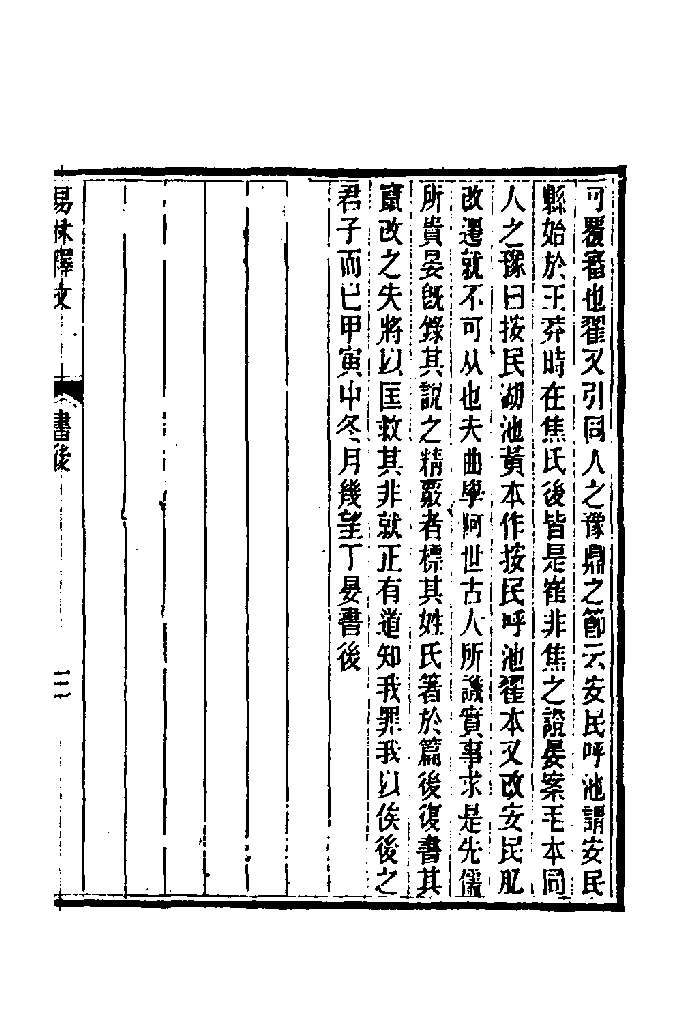 可覆審也翟又引同人之豫鼎之節云安民呼池謂安民
縣始於王莽時在焦氏後皆是崔非焦之證晏案毛本同
人之豫曰按民湖池黃本作按民呼池翟本又改安民
改遷就不可从也夫曲學阿世古人所譏實事求是先儒
所貴晏旣錄其說之精覈者標其姓氏箸於篇後復書其
竄改之失將以匡救其非就正有道知我罪我以俟後之
君子而已甲寅中冬月幾望丁晏書後
易林釋文
書後